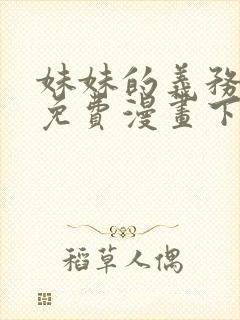 妹妹的義務
免費漫畫下
稻草人偶